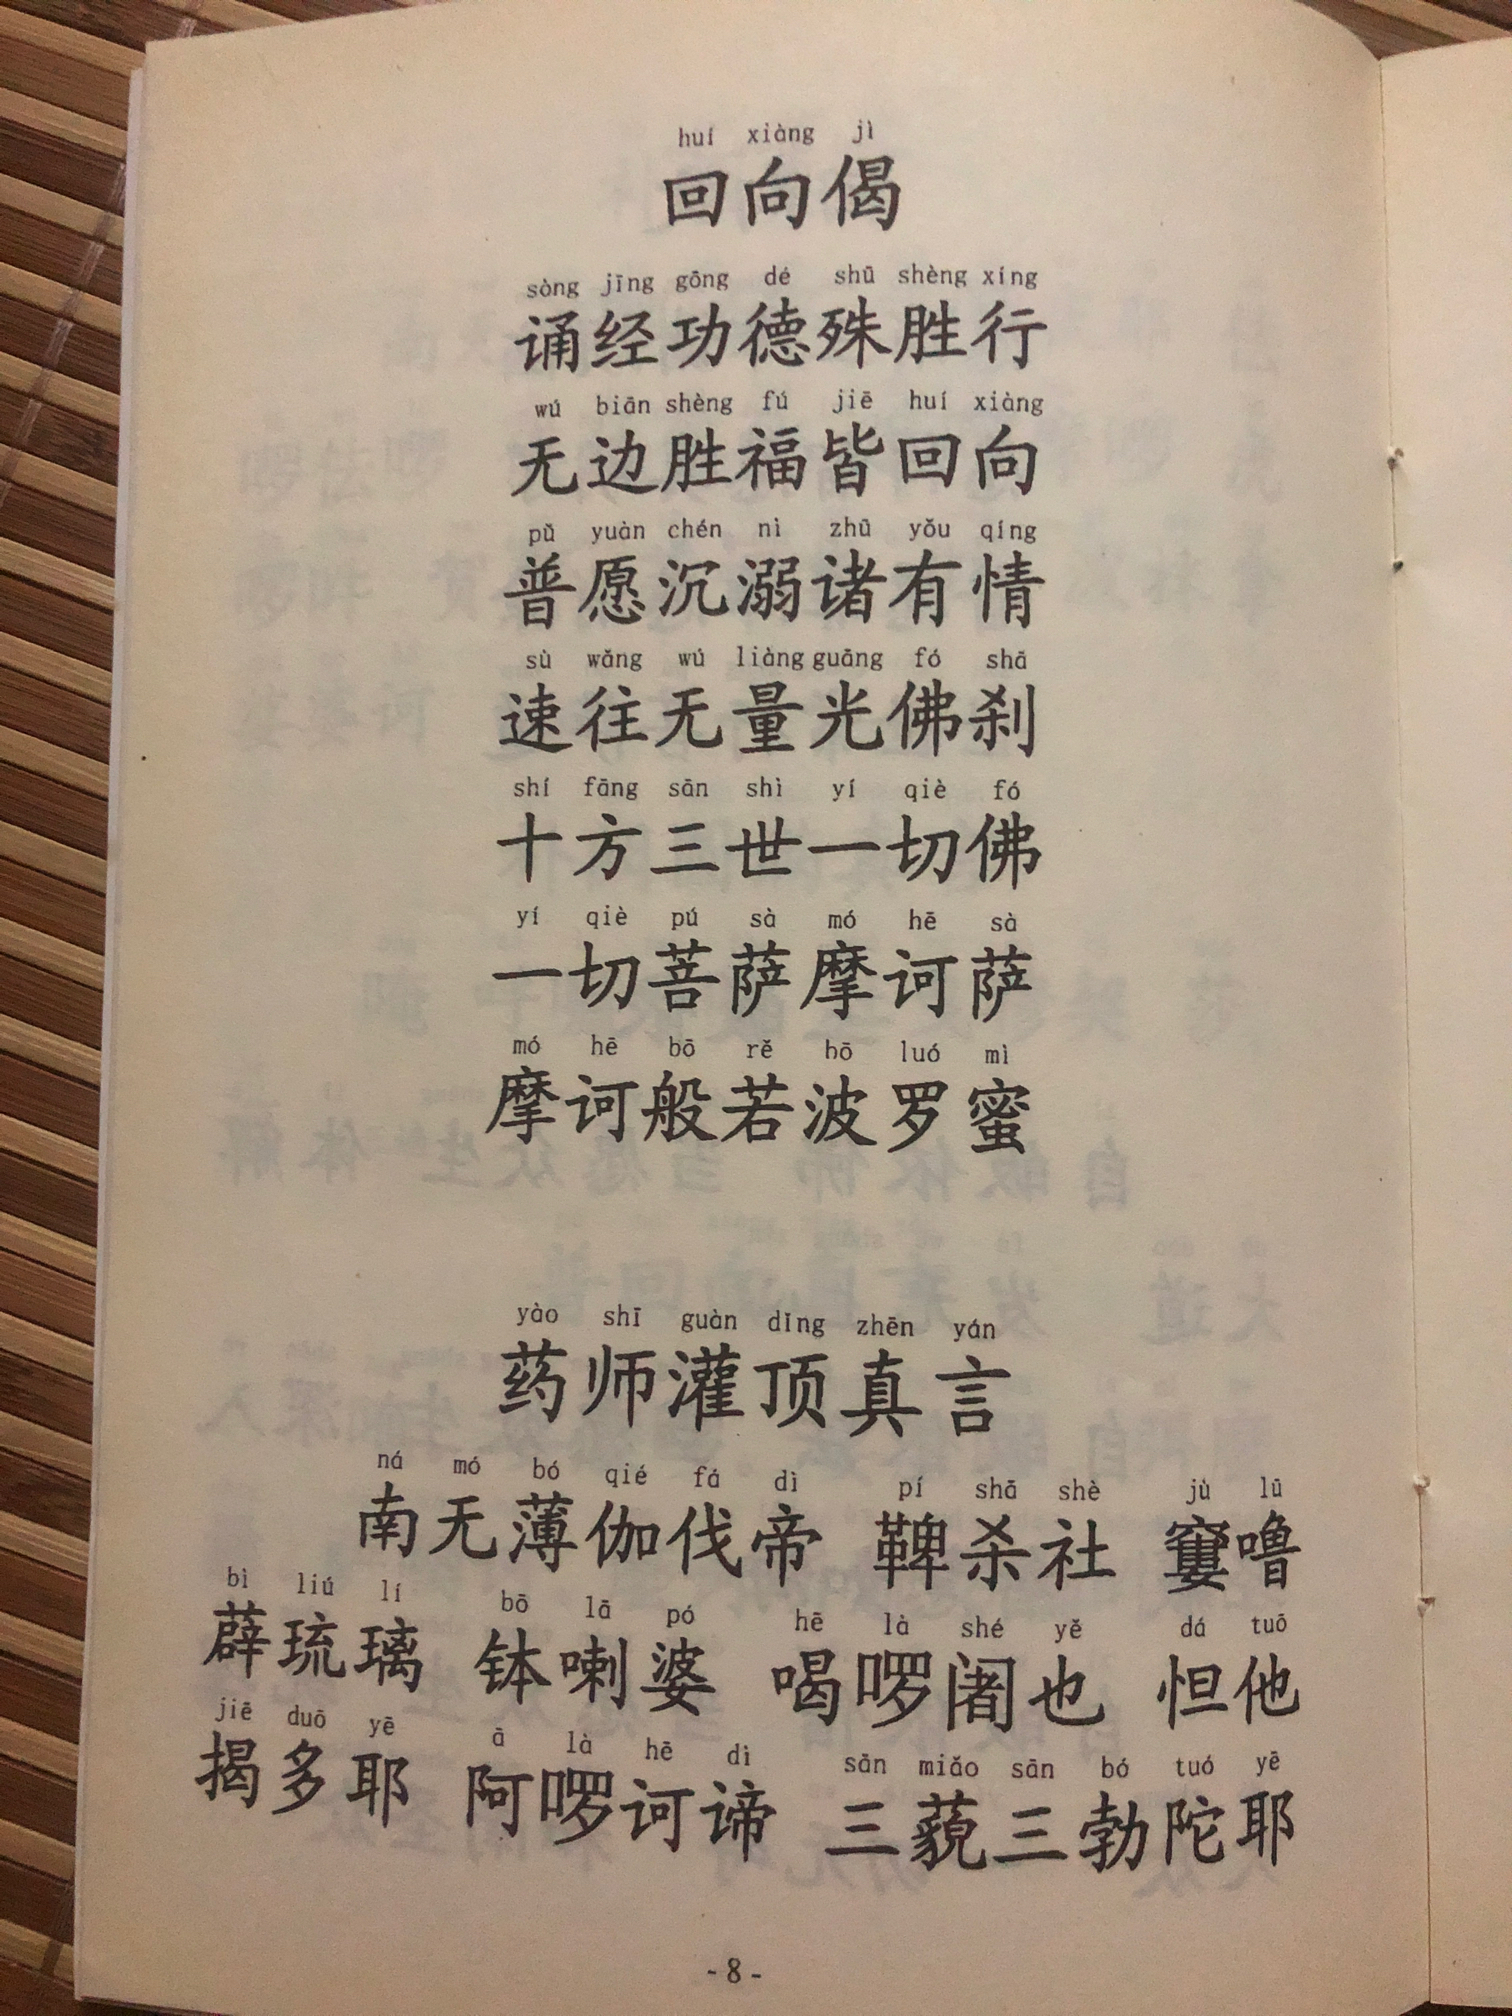 huí xiàng jì
回向偈
sòng jīng gōng dé shū shèng xíng
诵经功德殊胜行
wú biān shèng fú jiē huí xiàng
无边胜福皆回向
pǔ yuàn chén nì zhū yǒu qíng
普愿沉溺诸有情
sù wǎng wú liàng guāng fó shā
速往无量光佛刹
shí fāng sān shì yí qiè fó
十方三世一切佛
yí qiè pú sà mó hē sà
一切菩萨摩诃萨
mó hē bō rě bō luó mì
摩诃般若波罗蜜
yào shī guàn dǐng zhēn yán
药师灌顶真言
ná mó bó qié fá dì pí shā shè jù lū
南无薄伽伐帝 鞞杀社 窭噜
bì liú lí bō lā pó hē là shé yě dá tuō
薜琉璃 钵喇婆 喝啰阇也 怛他
jiē duō yē ā là hē dì sān miǎo sān bó tuó yē
揭多耶 阿啰诃谛 三藐三勃陀耶
- 8 -